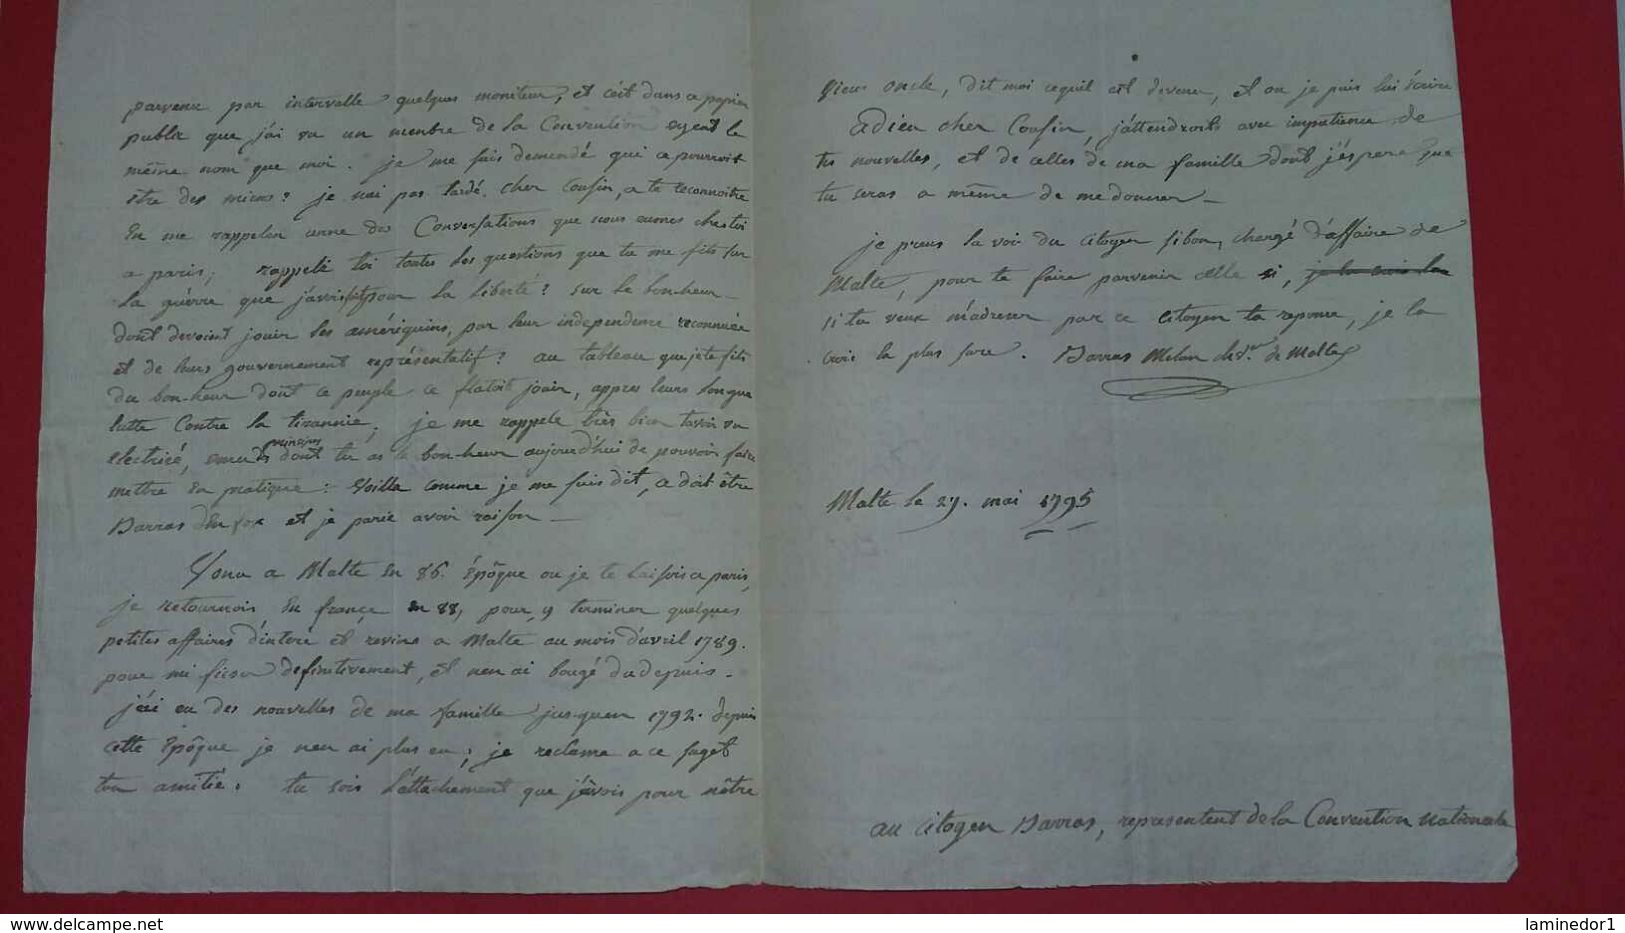 parvenu par intervalle quelques moniteur, et c'eit dans ce papier
public que j'ai vu un membre de la Convention eyent le
même nom que moi. je me suis demendé qui ce pourroit
être des miens? je nai pas tardé. cher Cousin, a te reconnoitre
En me rappelen unne des Conversations que nous eumes chestoi
a paris; rappele toi toutes les questions que tu me fits sur
la guérre que j'avoi fait pour la liberté? sur le bon-heur
dont devoient jouir les amériquins, par leur independence reconnuée
et de leurs gouvernement représentatif? au tableau que je te fits
du bon-heur dont ce peuple ce flatoit jouir, appres leurs longue
lutte Contre la tirannie; je me rappele très bien tavoir vu
electrisé, principes dont tu as le bon-heur aujourd'hui de pouvoir faire
mettre En pratique: voilla comme je me suis dit, ce doit être
Barras den fox et je parie avoir raison —
Venu a Malte en 86. Epôque ou je te laissois a paris,
je retournois En françe en 88, pour, y terminer quelques
petites affaires d'interè et revins a Malte au mois d'avril 1789.
pour mi ficser definitivement, et nen ai bougé dudepuis.
j'ai eu des nouvelles de ma famille jus-quen 1792. depuis
cette Epôque je nen ai plus eu; je reclame a ce suget
ton amitié. tu sois l'attachement que j'avois pour nôtre
vieux oncle, dit moi cequil est devenu, et ou je puis lui écrire
Adieu cher Cousin, j'attendroits avec impatience de
tes nouvelles, et de celles de ma famille dont j'éspere que
tu seras a même de me donner —
je prens la voir du Citoyen sibon, chargé d'affaire de
Malte, pour te faire parvenir celle si, je la crois la
si tu veux m'adresser par ce Citoyen ta reponse, je la
crois la plus sure. Barras Melan chev.er de Malte
Malte le 27. mai 1795
au Citoyen Barras, representent de la Convention nationale
www.delcampe.net
laminedor1